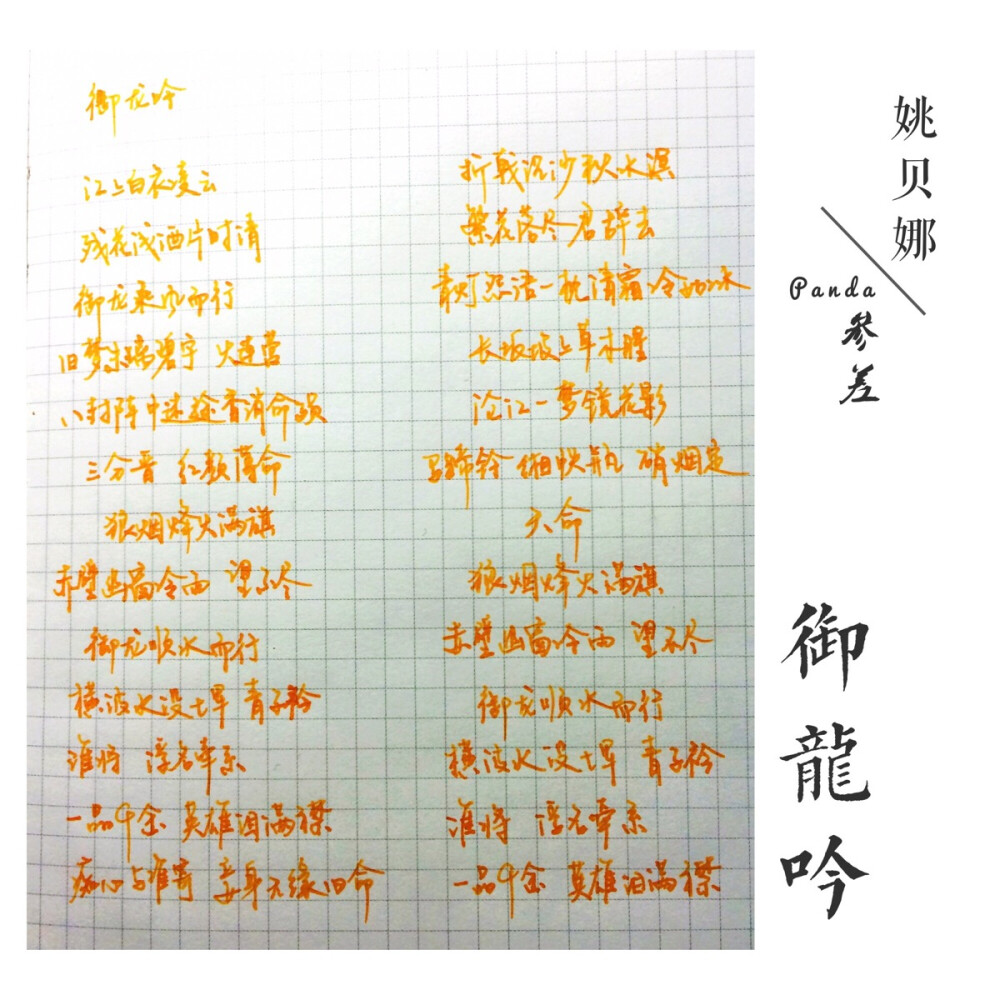 御龙吟
江上白衣凌云
残花浅酒片时清
御龙乘风而行
旧梦未瑞碧宇 火连营
八封阵中迷途香消命颂
三分晋 红颜薄命
狼烟烽火满旗
赤壁幽窗冷雨 望不尽
御龙顺水而行
横波水没七旱 青子衿
谁将 浮名牵系
一品中金 英雄泪满襟
痴心与谁寄 妾身无缘旧命
折戟沉沙秋水溟
繁花落尽君辞去
青灯怨语一枕清霜冷如冰
长坂坡上草木腥
沧江一梦镜花影
马蹄 硝烟定
天命
狼烟烽火满旗
赤壁幽窗冷雨 望不尽
御龙顺水而行
横波水没七旱 青子衿
谁将 浮名牵系
一品中金 英雄泪满襟
姚贝娜
Panda
参差
御龍吟